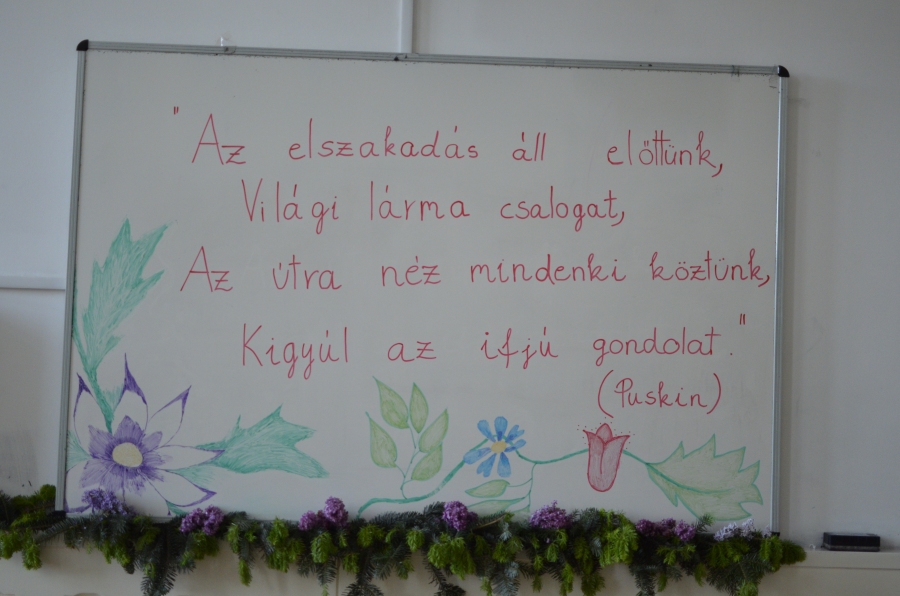 "Az elszakadás áll előttünk,
Világi lárma csalogat,
Az útra néz mindenki köztünk,
Kigyúl az ifjú gondolat."
(Puskin)